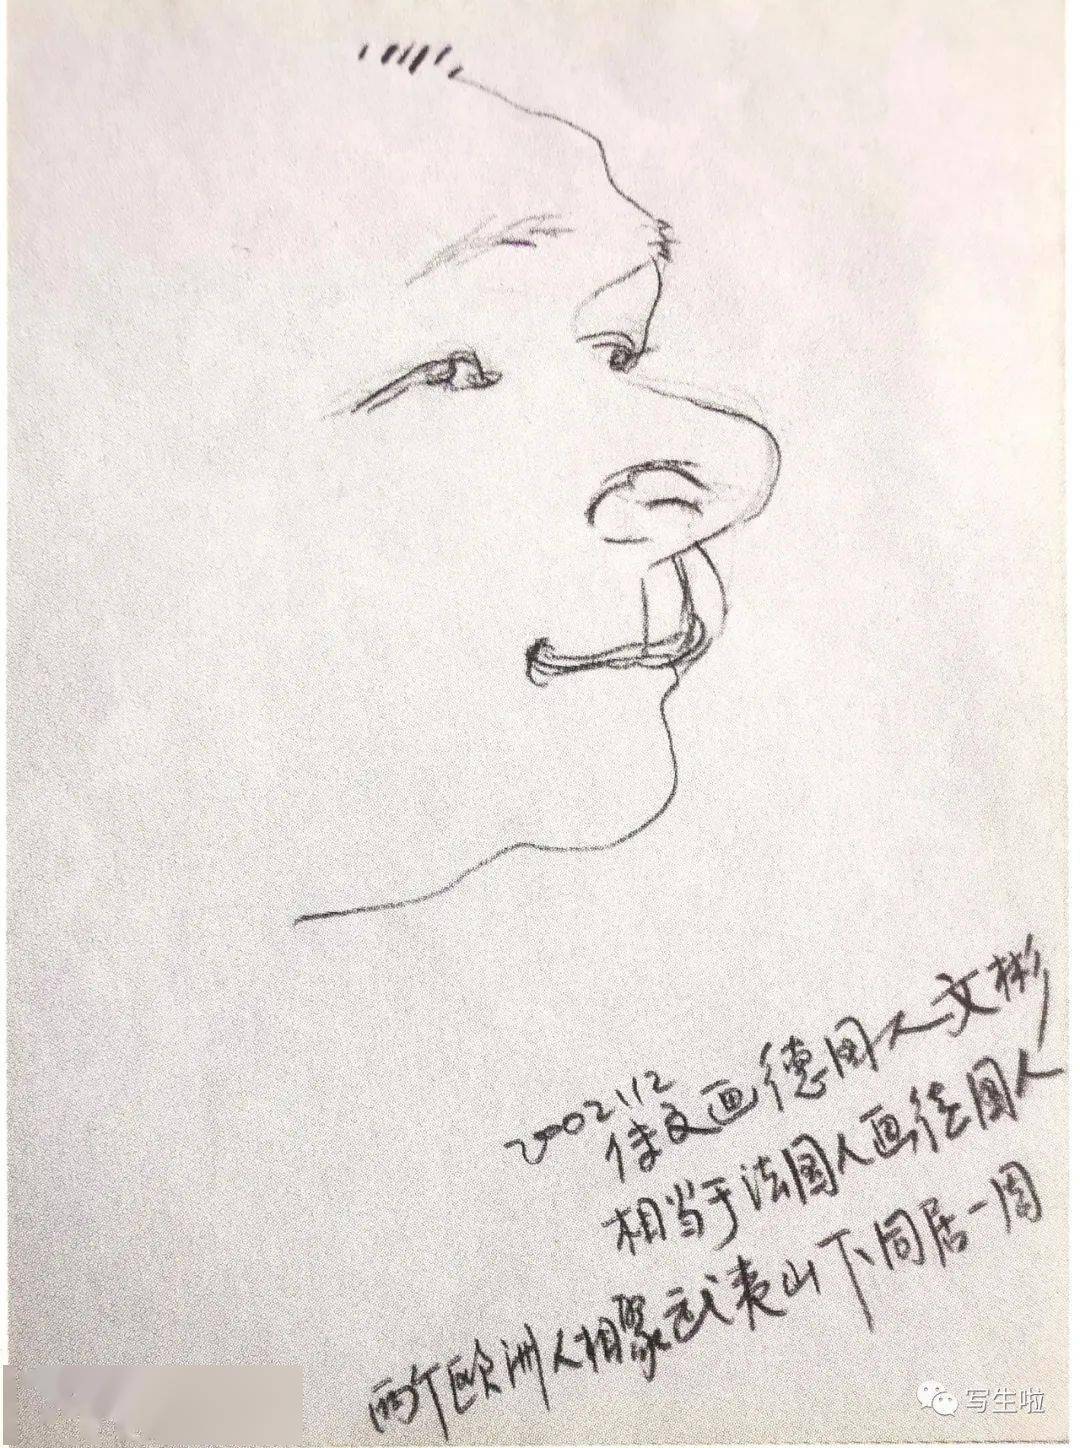 2002.12
徐文画德国人文彬
相当于法国人画德国人
两个欧洲人相聚武夷山下同居一周
写生啦